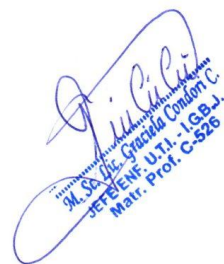 M. Sc. Lic. Graciela Condori C.
JEFE ENF. U.T.I. - I.G.B.J.
Matr. Prof. C-526